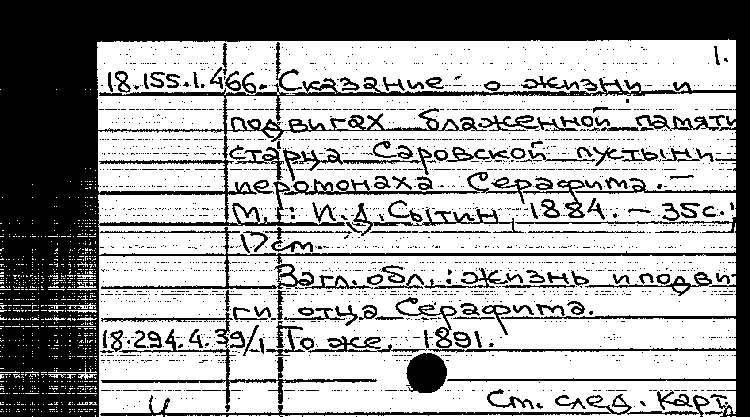 1.
18.155.1.466. Сказание о жизни и
подвигах блаженной памяти
старца Саровской пустыни
иеромонаха Серафима. —
М.: И.Д. Сытин, 1884. — 35с.;
17см.
Загл. обл.: жизнь и подви-
ги отца Серафима.
18.294.4.39/1 То же. 1891.
См. след. карт.